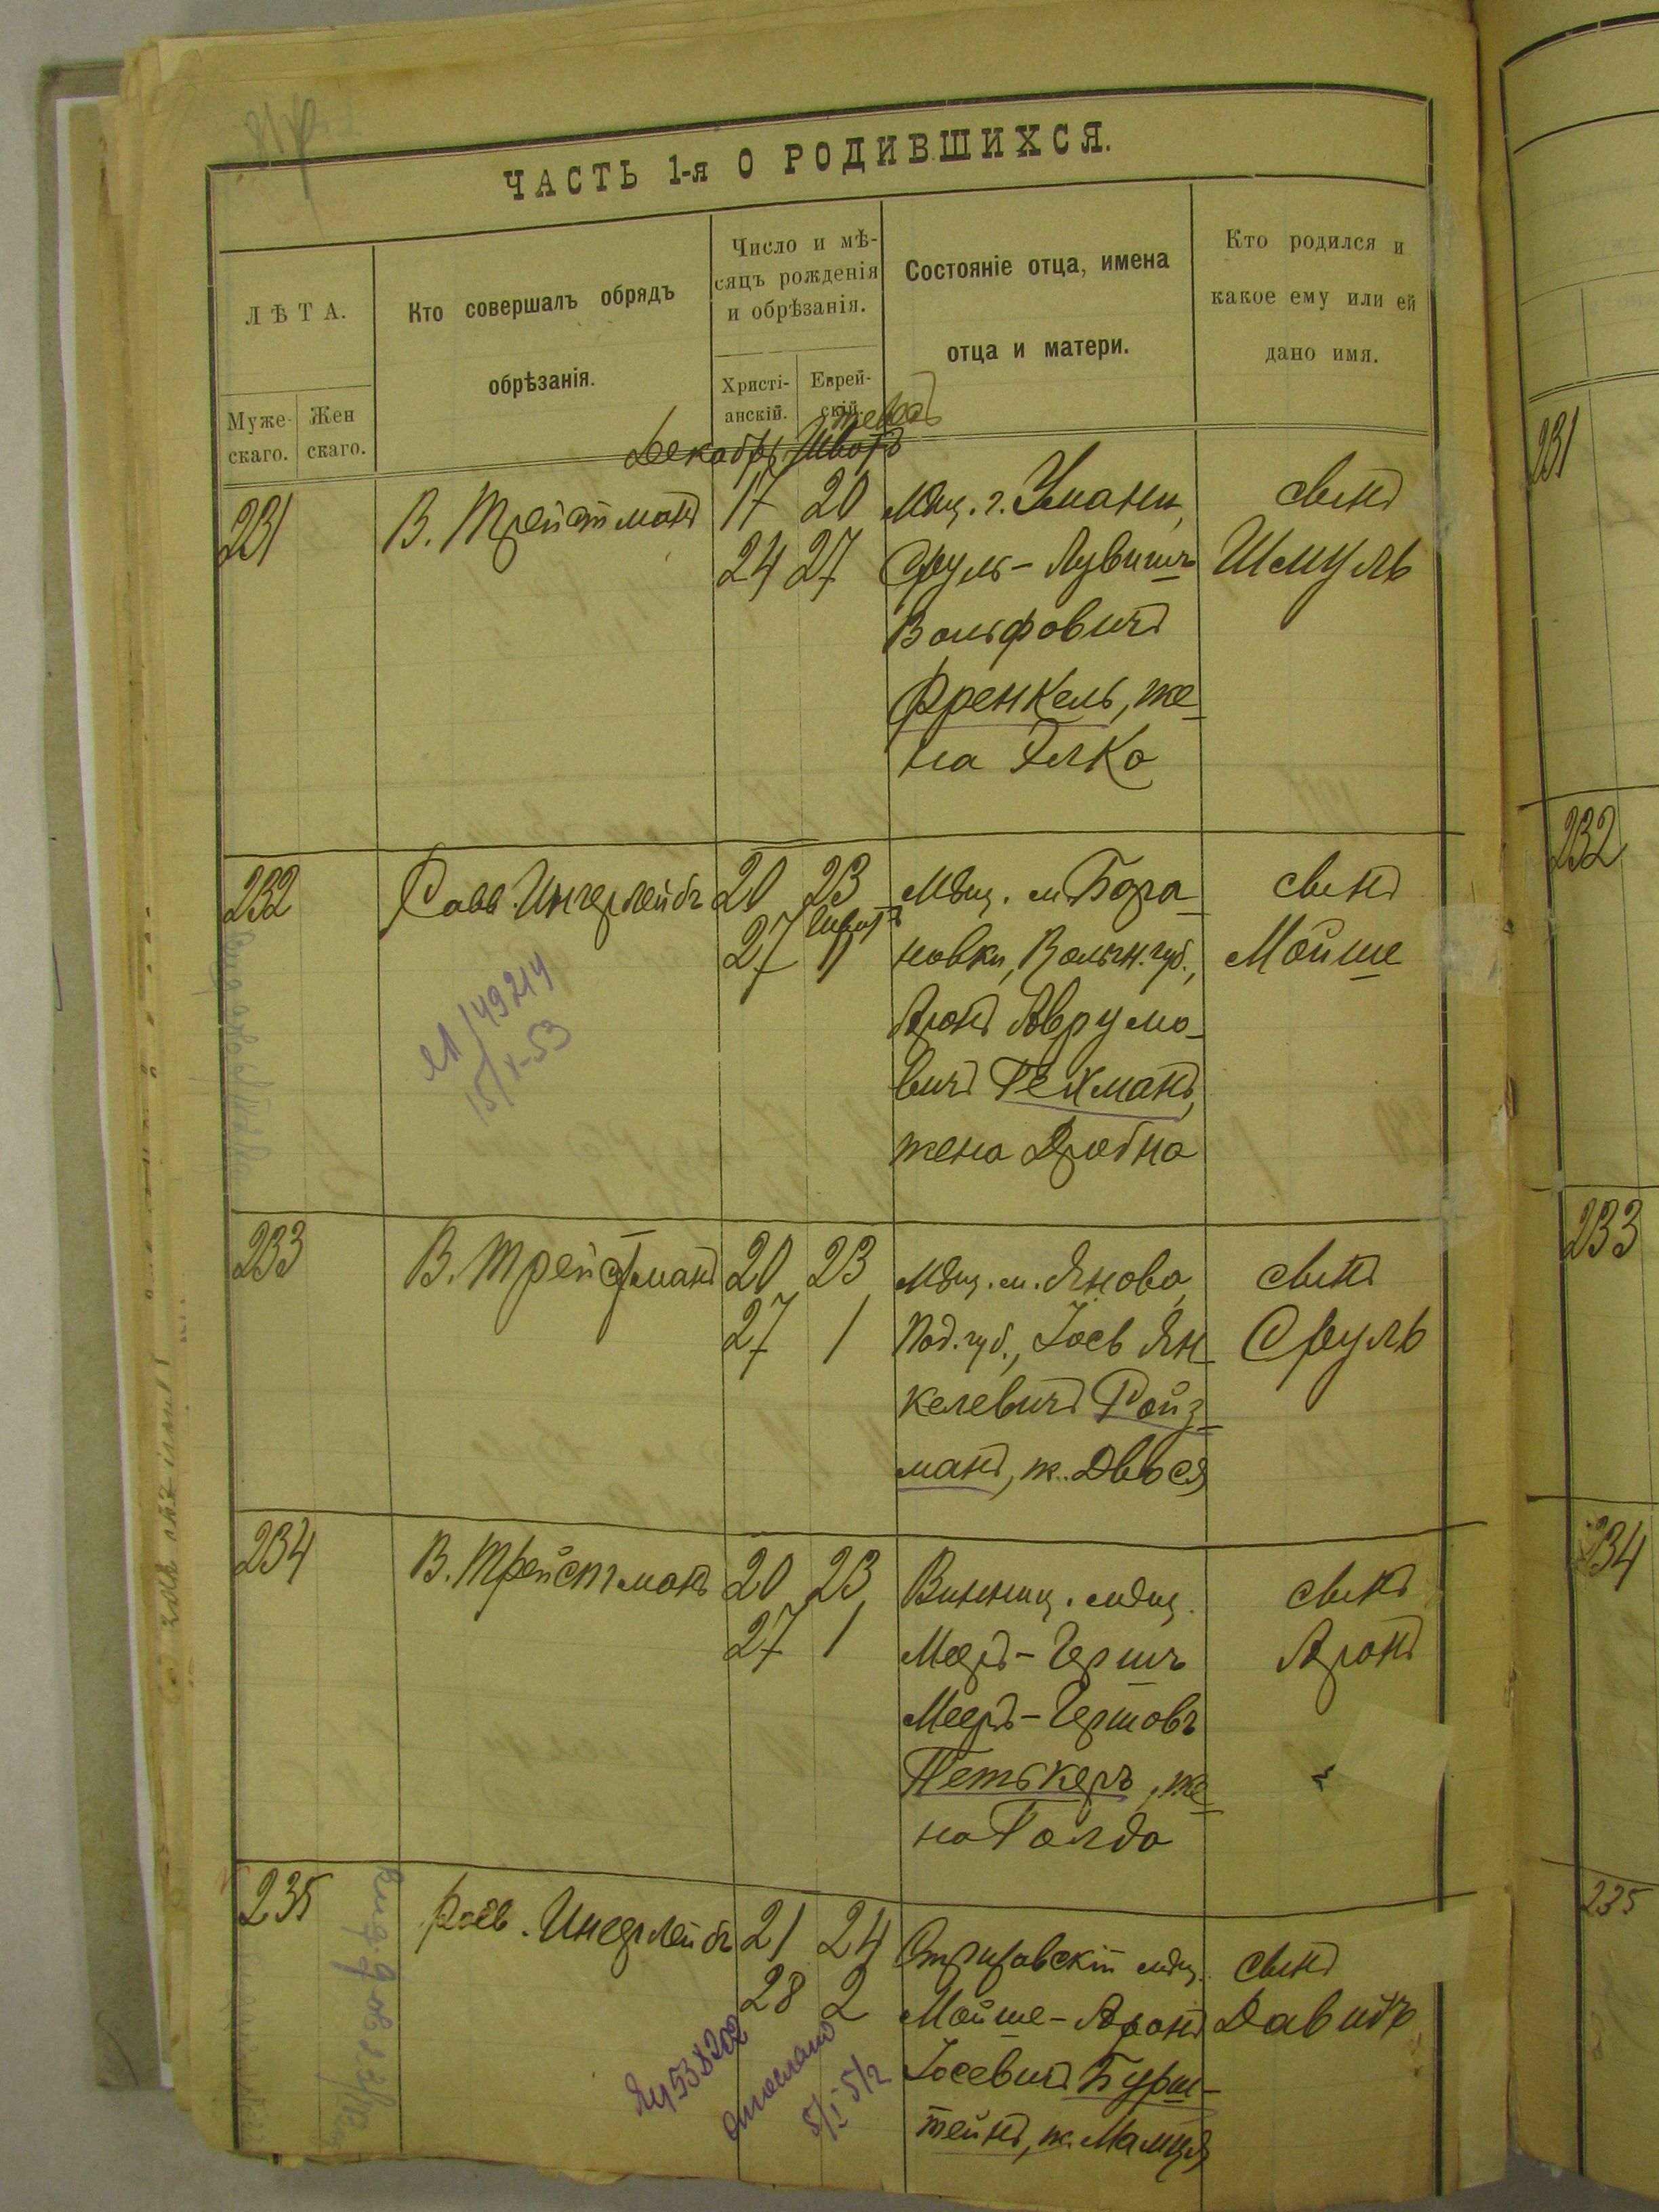 ЧАСТЬ 1-я О РОДИВШИХСЯ.
ЛѢТА.
Муже-
скаго.
Жен
скаго.
Кто совершалъ обрядъ
обрѣзанія.
Число и мѣ-
сяцъ рожденія
и обрѣзанія.
Христі-
анскій.
Еврей-
скій.
Состояніе отца, имена
отца и матери.
Кто родился и
какое ему или ей
дано имя.
Декабрь Шватъ
231
В. Тройстманъ
17 20
24 27
Мѣщ. г. Умани,
Сруль-Лувишъ
Вольфовичъ
Френкель, же-
на Элка
сынъ
Шмуль
232
Равв. Ингерлейбъ
20 23
Шватъ
27 1
Мѣщ. м. Бара-
новки, Волын. губ.,
Аронъ Аврумо-
вичъ Рехманъ,
жена Дробна
сынъ
Мойше
Я1/49214
15/X-53
233
В. Тройстманъ
20 23
27 1
Мѣщ. м. Янова
Под. губ., Іось Ян-
келевичъ Ройз-
манъ, ж. Двося
сынъ
Сруль
234
В. Тройстманъ
20 23
27 1
Винниц. мѣщ.
Мееръ-Гершъ
Мееръ-Гершовъ
Петькеръ, же-
на Голда
сынъ
Аронъ
235
Равв. Ингерлейбъ
21 24
28 2
мѣщ.
Мойше-Аронъ
Іосевичъ Бурш-
тейнъ, ж. Малця
сынъ
Давидъ
538202
231
232
233
234
235